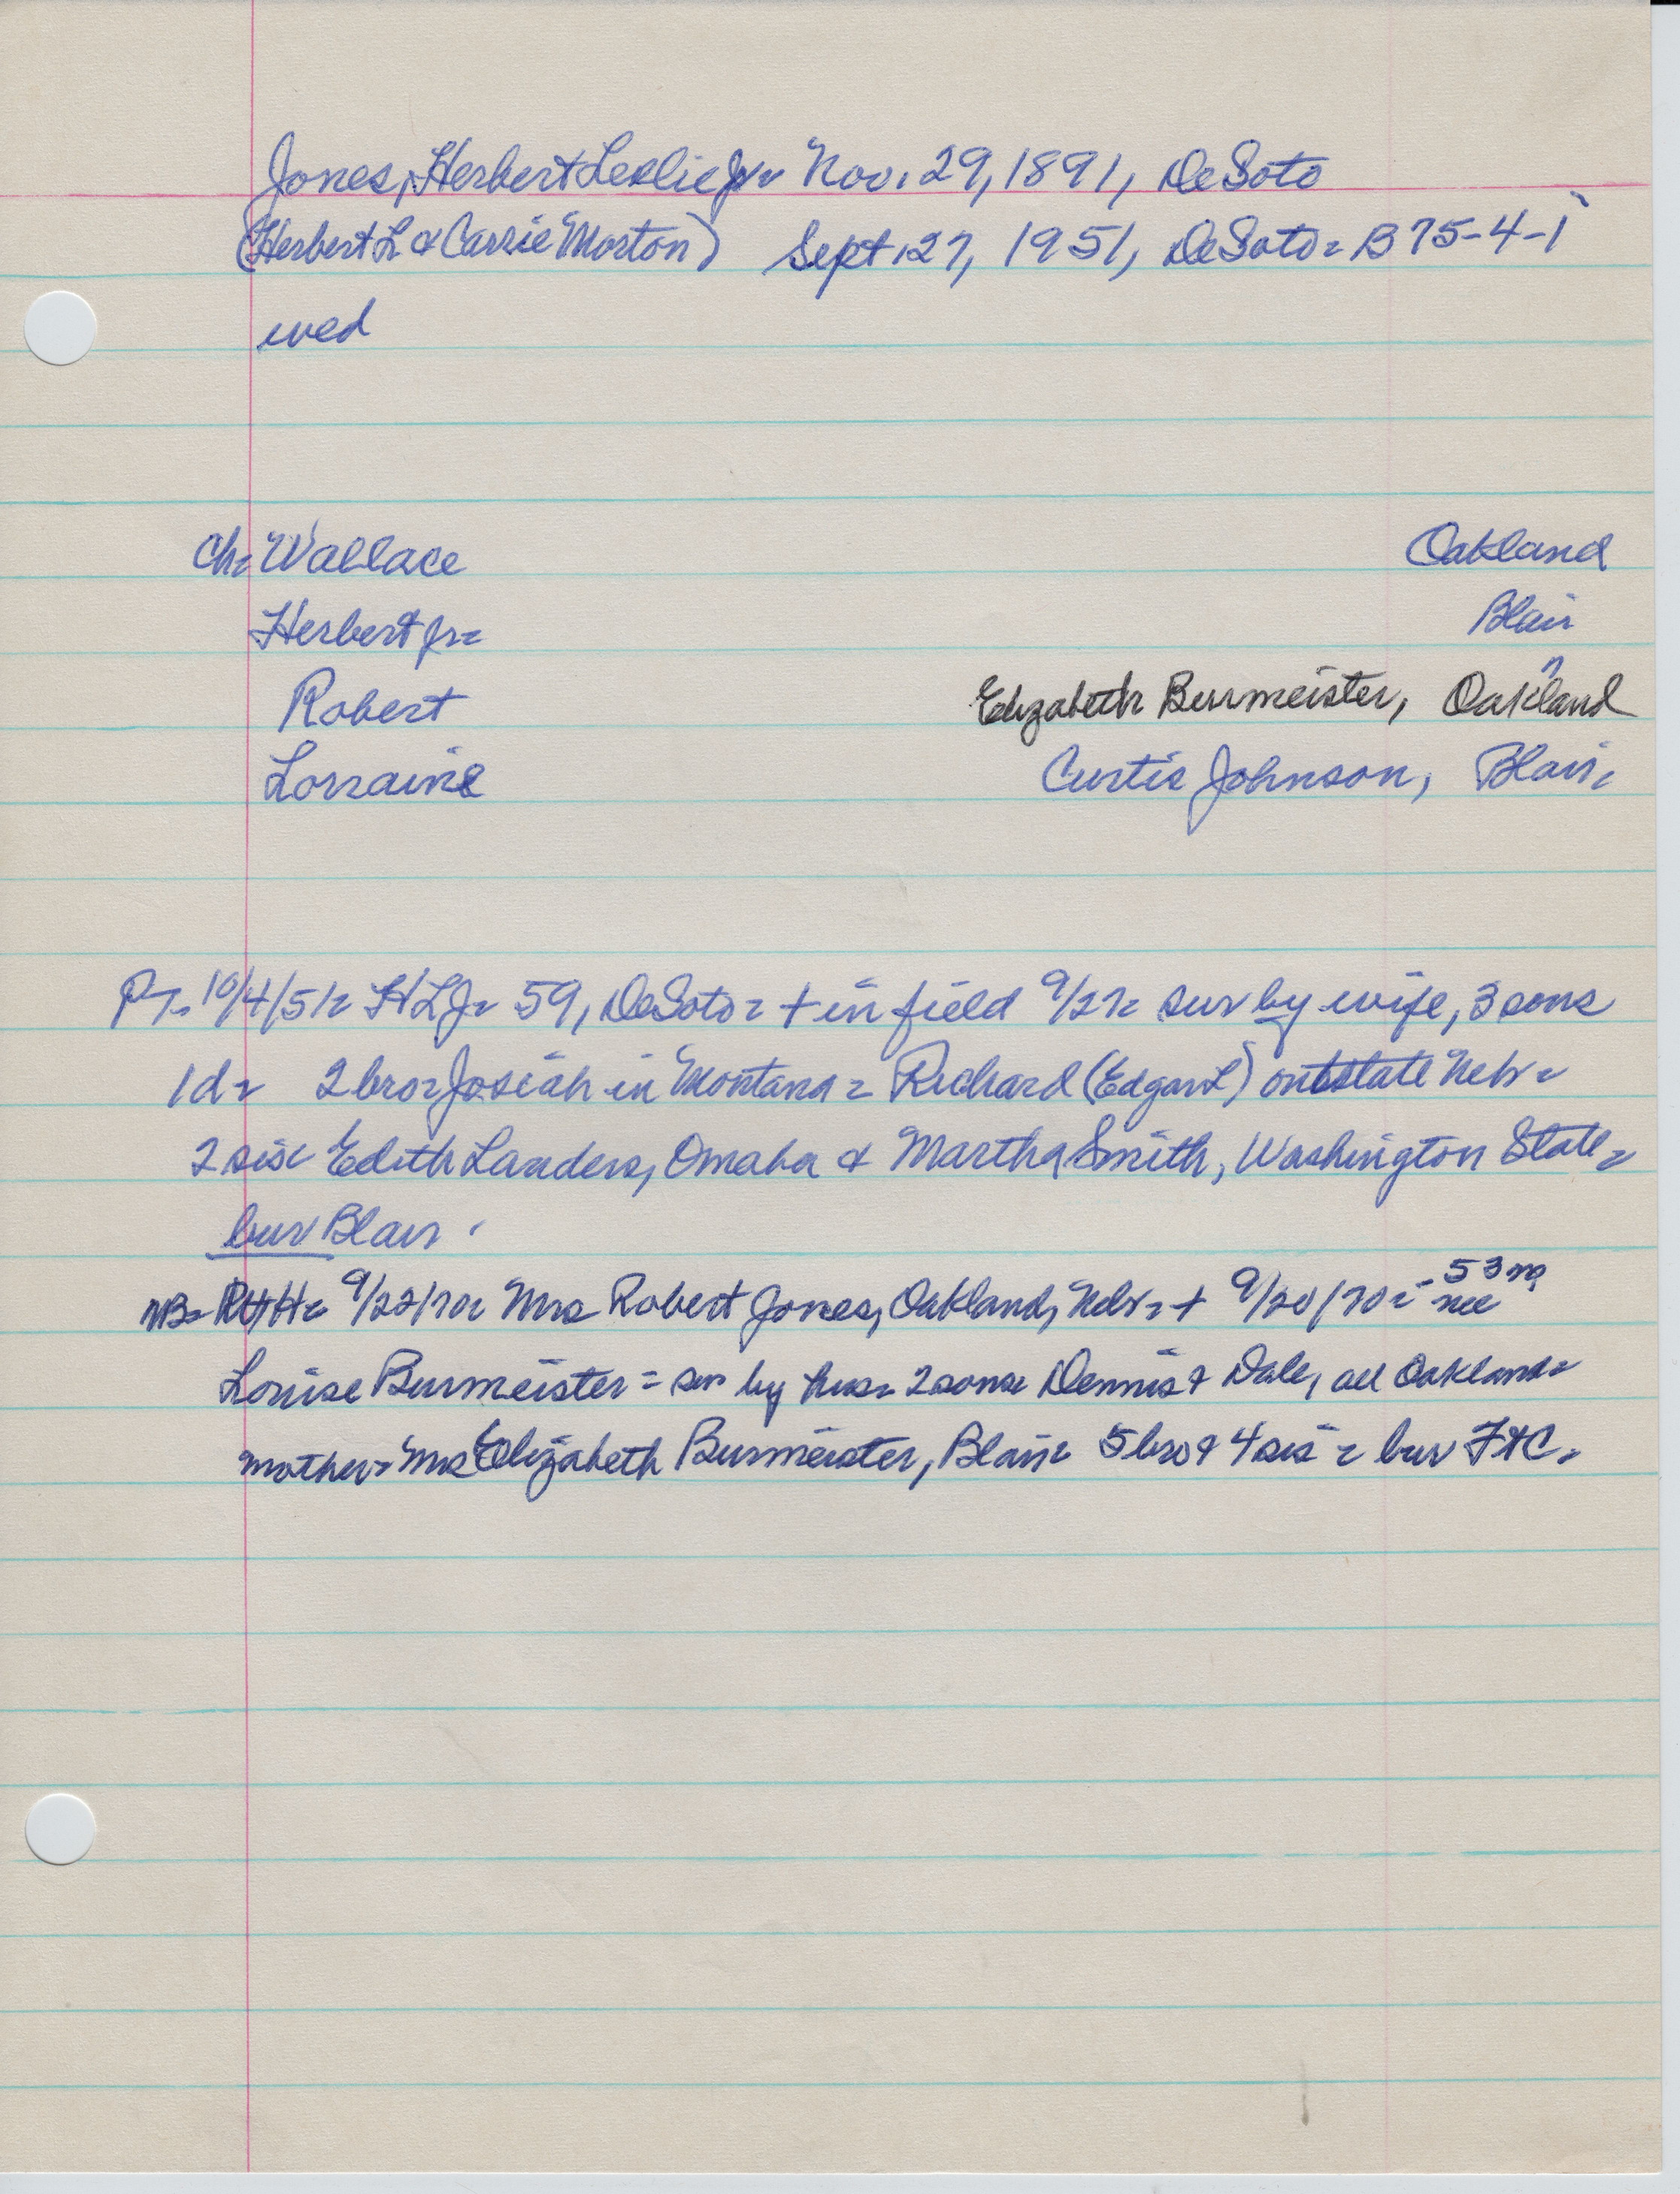 Jones, Herbert Leslie Jr= Nov. 29, 1891, DeSoto
(Herbert L & Carrie Morton) Sept. 27, 1951, DeSoto= B 75-4-1
wed
Ch= Wallace Oakland
Herbert Jr= Blair
Robert Elizabeth Burmeister, Oakland
Lorraine Curtis Johnson, Blair=
PT= 10/4/51= HLJ= 59, DeSoto= + in field 9/27= sur by wife, 3 sons
1 d= 2 bro= Josiah in Montana= Richard (Edgar L) outstate Nebr=
2 sis= Edith Landers, Omaha & Martha Smith, Washington State=
bur Blair.
NB= RHH= 9/22/70= Mrs Robert Jones, Oakland, Nebr= + 9/20/70= -53 nee
Louise Burmeister= sur by hus= 2 sons= Dennis & Dale, all Oakland=
mother= Mrs Elizabeth Burmeister, Blair= 5 bro & 4 sis= bur